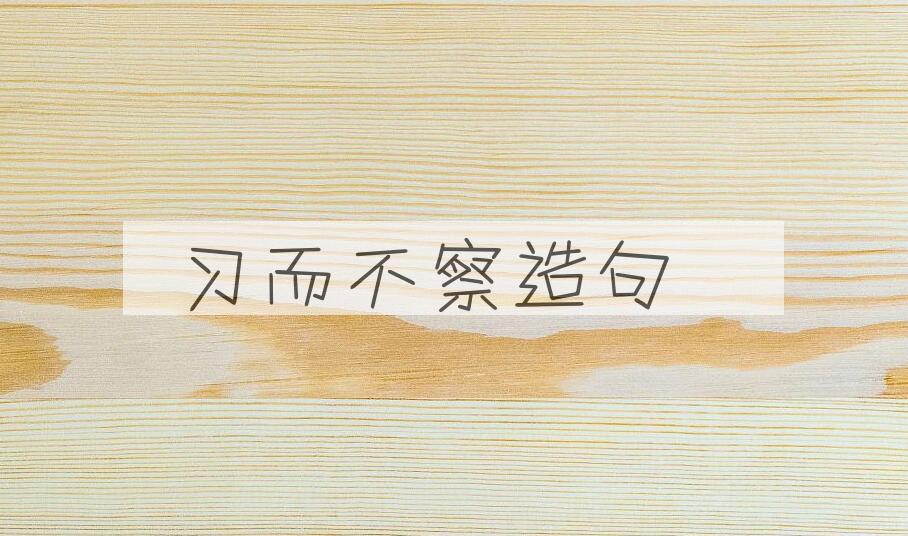 习而不察造句